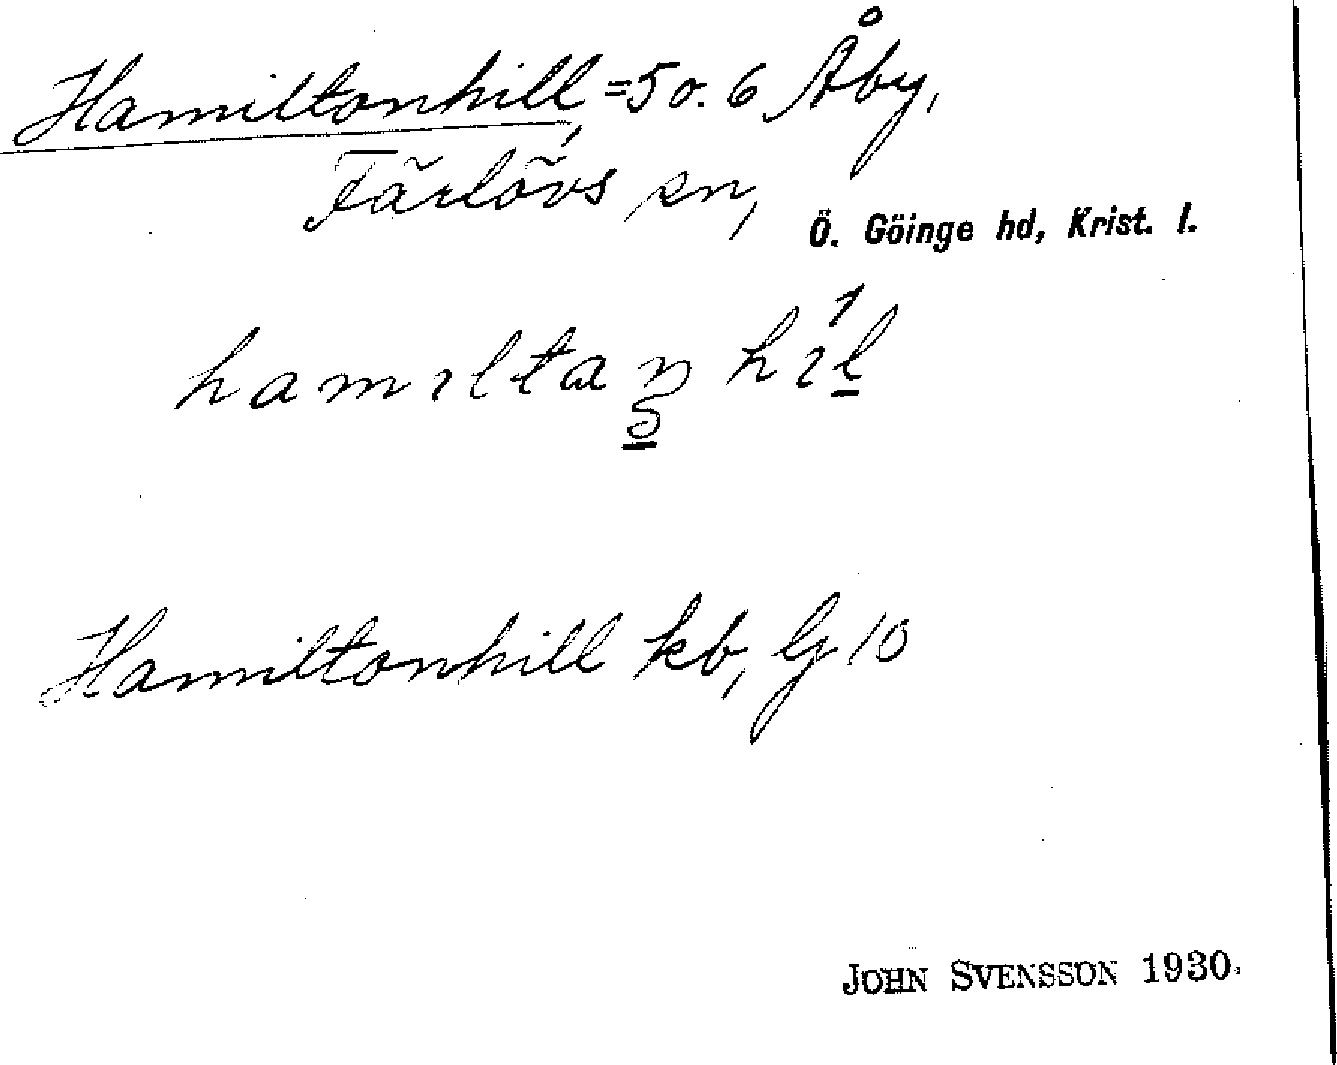 Hamiltonhill, =5 o. 6 Åby,
Färlövs sn,
Ö. Göinge hd, Krist. l.
hamıltaŋ hıl
1
Hamiltonhill kb, G 10
JOHN SVENSSON 1930.